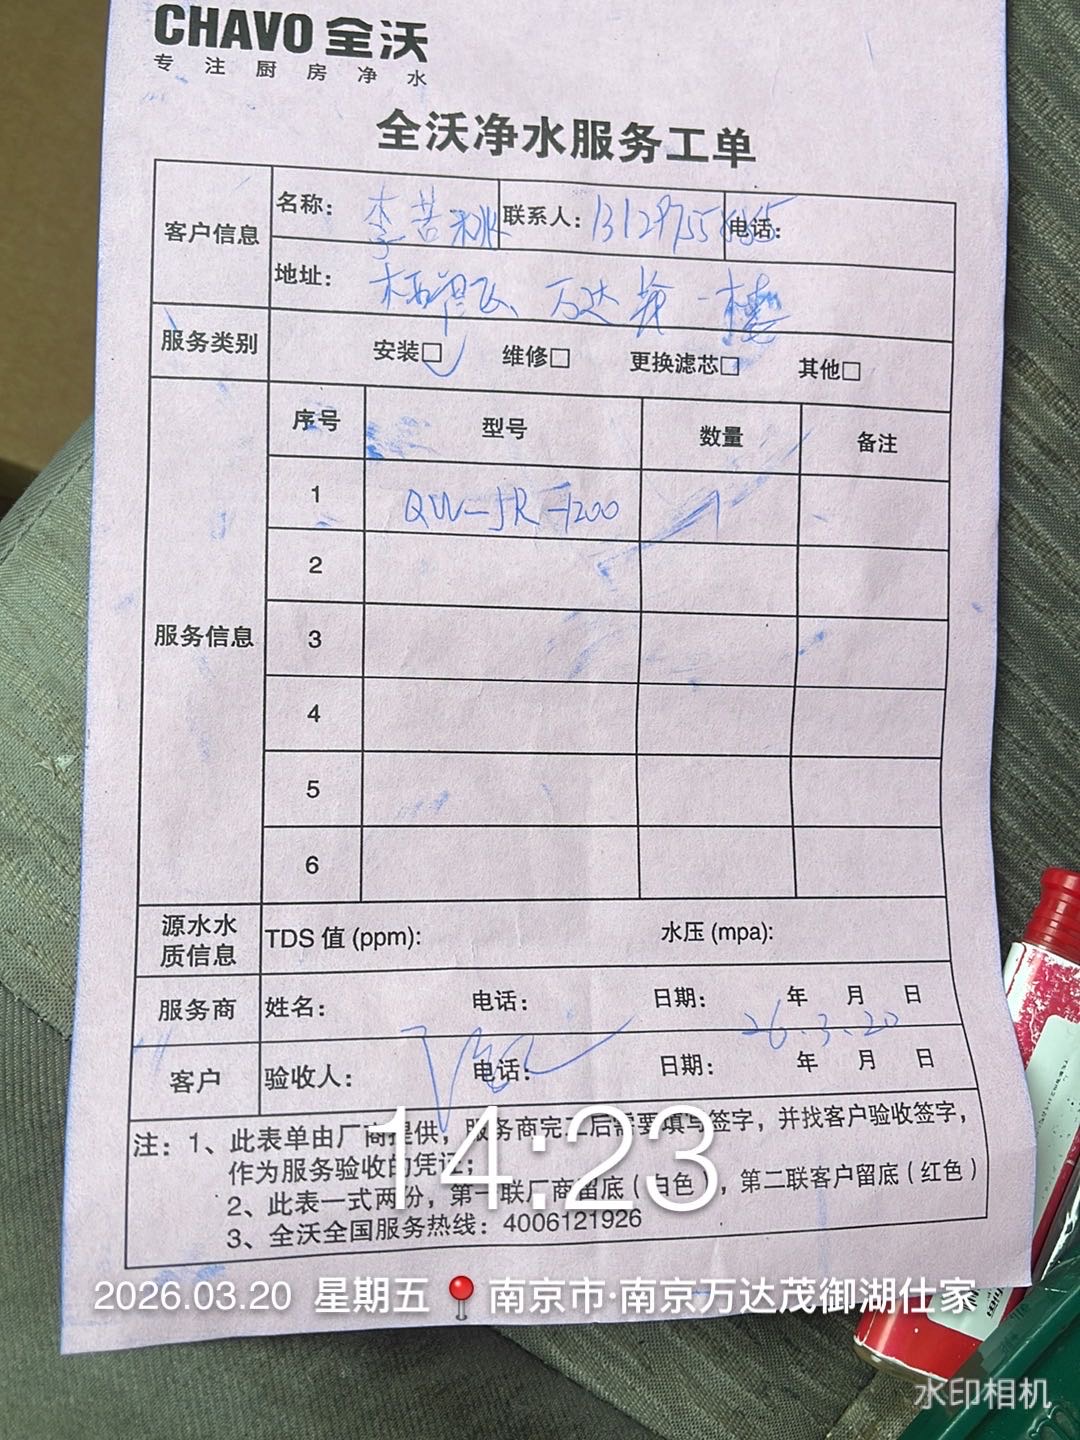 CHAVO 全沃
专注厨房净水
全沃净水服务工单
客户信息 名称：李苦 联系人：电话：
地址：栖霞区、万达茂一楼
服务类别 安装□ 维修□ 更换滤芯□ 其他□
服务信息 序号 型号 数量 备注
1 QW-JR-1200 1
2
3
4
5
6
源水水质信息 TDS 值 (ppm): 水压 (mpa):
服务商 姓名： 电话： 日期： 年 月 日
26.3.20
客户 验收人： 电话： 日期： 年 月 日
注：1、此表单由厂商提供，服务商完工后需要填写签字，并找客户验收签字，
作为服务验收的凭证；
2、此表一式两份，第一联厂商留底（白色），第二联客户留底（红色）
3、全沃全国服务热线：4006121926
14:23
2026.03.20 星期五 南京市·南京万达茂御湖仕家
水印相机